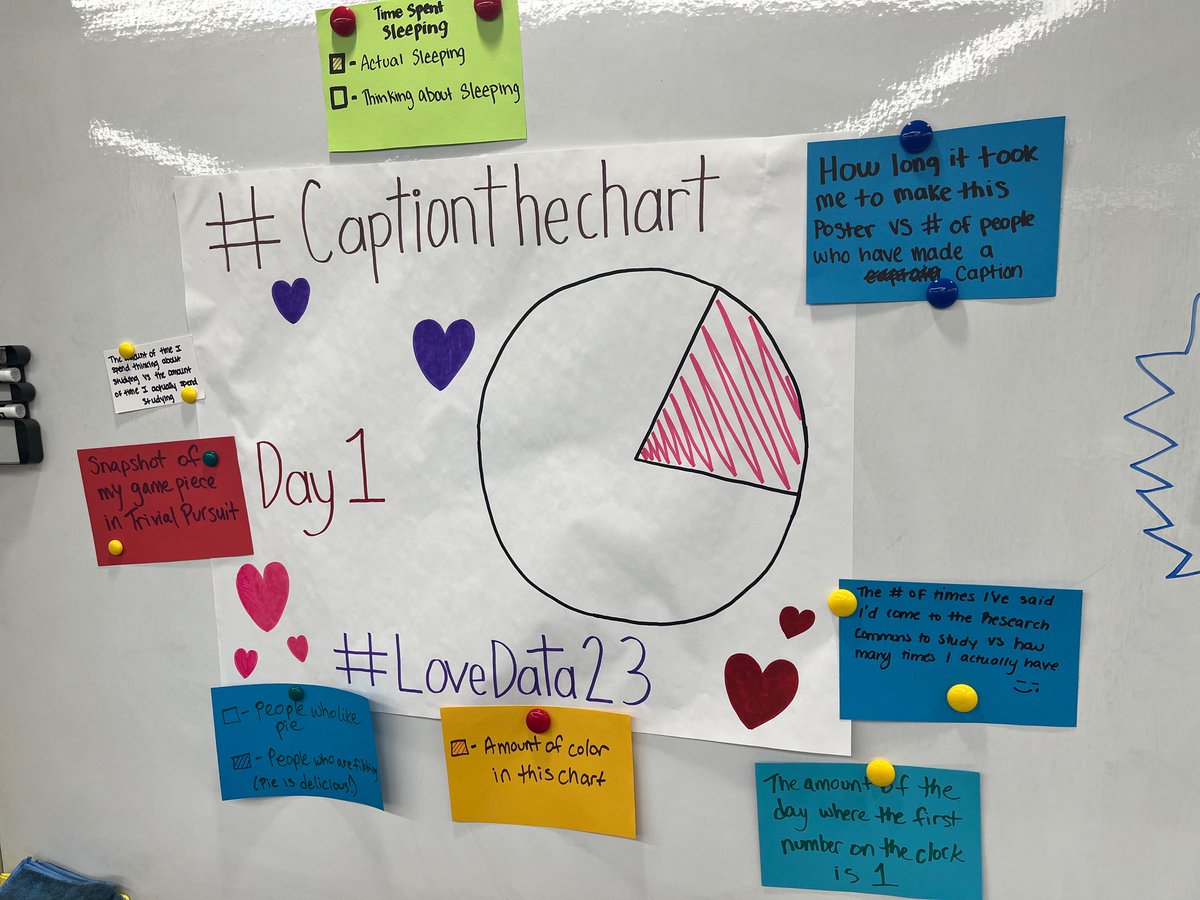 Time Spent
Sleeping
- Actual Sleeping
- Thinking about Sleeping
#Captionthechart
How long it took
me to make this
Poster vs # of people
who have made a
Caption
The amount of time I
spend thinking about
studying vs the amount
of time I actually spend
studying
Snapshot of
my game piece
in Trivial Pursuit
Day 1
The # of times I've said
I'd come to the Research
Commons to study vs how
many times I actually have
#LoveData23
- People who like
pie
- People who are fibbing
(Pie is delicious!)
- Amount of color
in this chart
The amount of the
day where the first
number on the clock
is 1